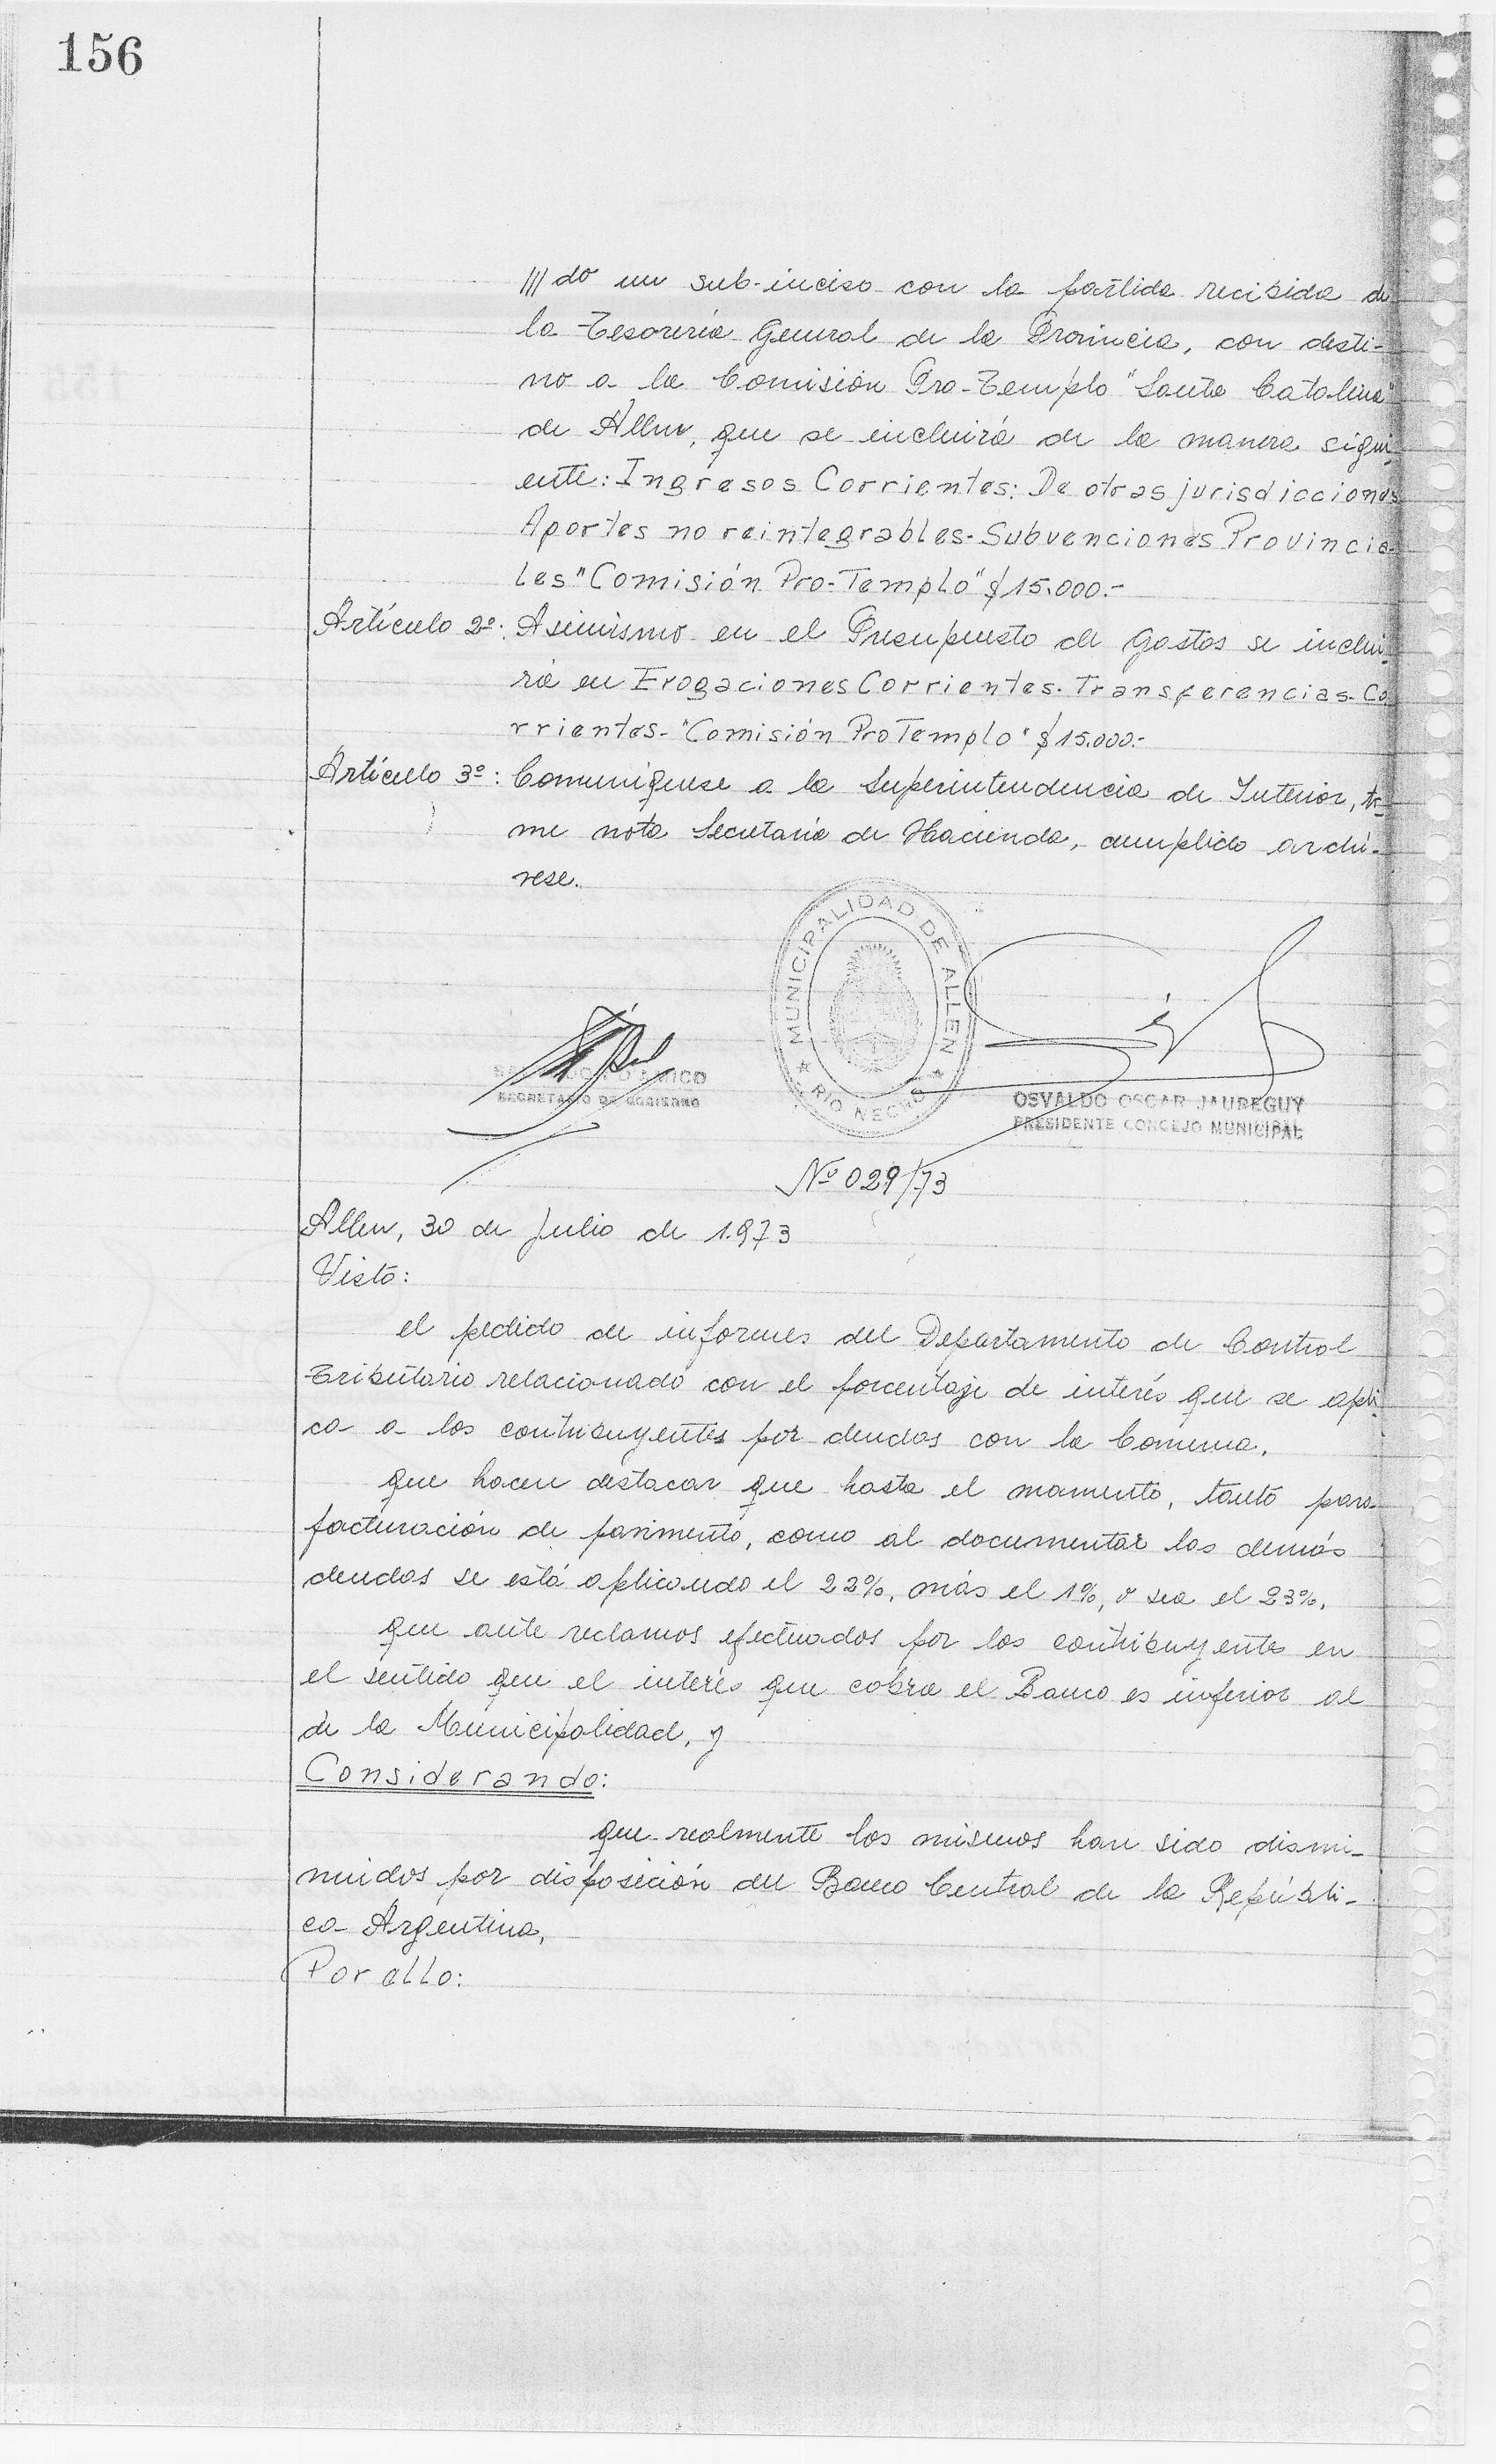 156
///do un sub-inciso con la partida recibida de
la Tesorería General de la Provincia, con desti-
no a la Comisión Pro-Templo "Santa Catalina"
de Allen, que se incluirá de la manera sigui-
ente: Ingresos Corrientes: De otras jurisdicciones
Aportes no reintegrables-Subvenciones Provincia-
les "Comisión Pro-Templo" $ 15.000.-
Artículo 2º: Asimismo en el Presupuesto de Gastos se inclui-
rá en Erogaciones Corrientes. Transferencias-Co
rrientes- "Comisión Pro Templo" $ 15.000.-
Artículo 3º: Comuníquese a la Superintendencia de Interior, to-
me nota Secretaría de Hacienda, cumplido archí-
vese.
MUNICIPALIDAD DE ALLEN
RIO NEGRO
SECRETARIO DE GOBIERNO
OSVALDO OSCAR JAUREGUY
PRESIDENTE CONCEJO MUNICIPAL
Nº 029/73
Allen, 30 de Julio de 1.973
Visto:
el pedido de informes del Departamento de Control
Tributario relacionado con el porcentaje de interés que se apli-
ca a los contribuyentes por deudas con la Comuna.
que hacen destacar que hasta el momento, tanto para
facturación de pavimento, como al documentar las demás
deudas se está aplicando el 22%, más el 1%, o sea el 23%.
que ante reclamos efectuados por los contribuyentes en
el sentido que el interés que cobra el Banco es inferior al
de la Municipalidad, y
Considerando:
que realmente los mismos han sido dismi-
nuidos por disposición del Banco Central de la Repúbli-
ca Argentina,
Por ello: